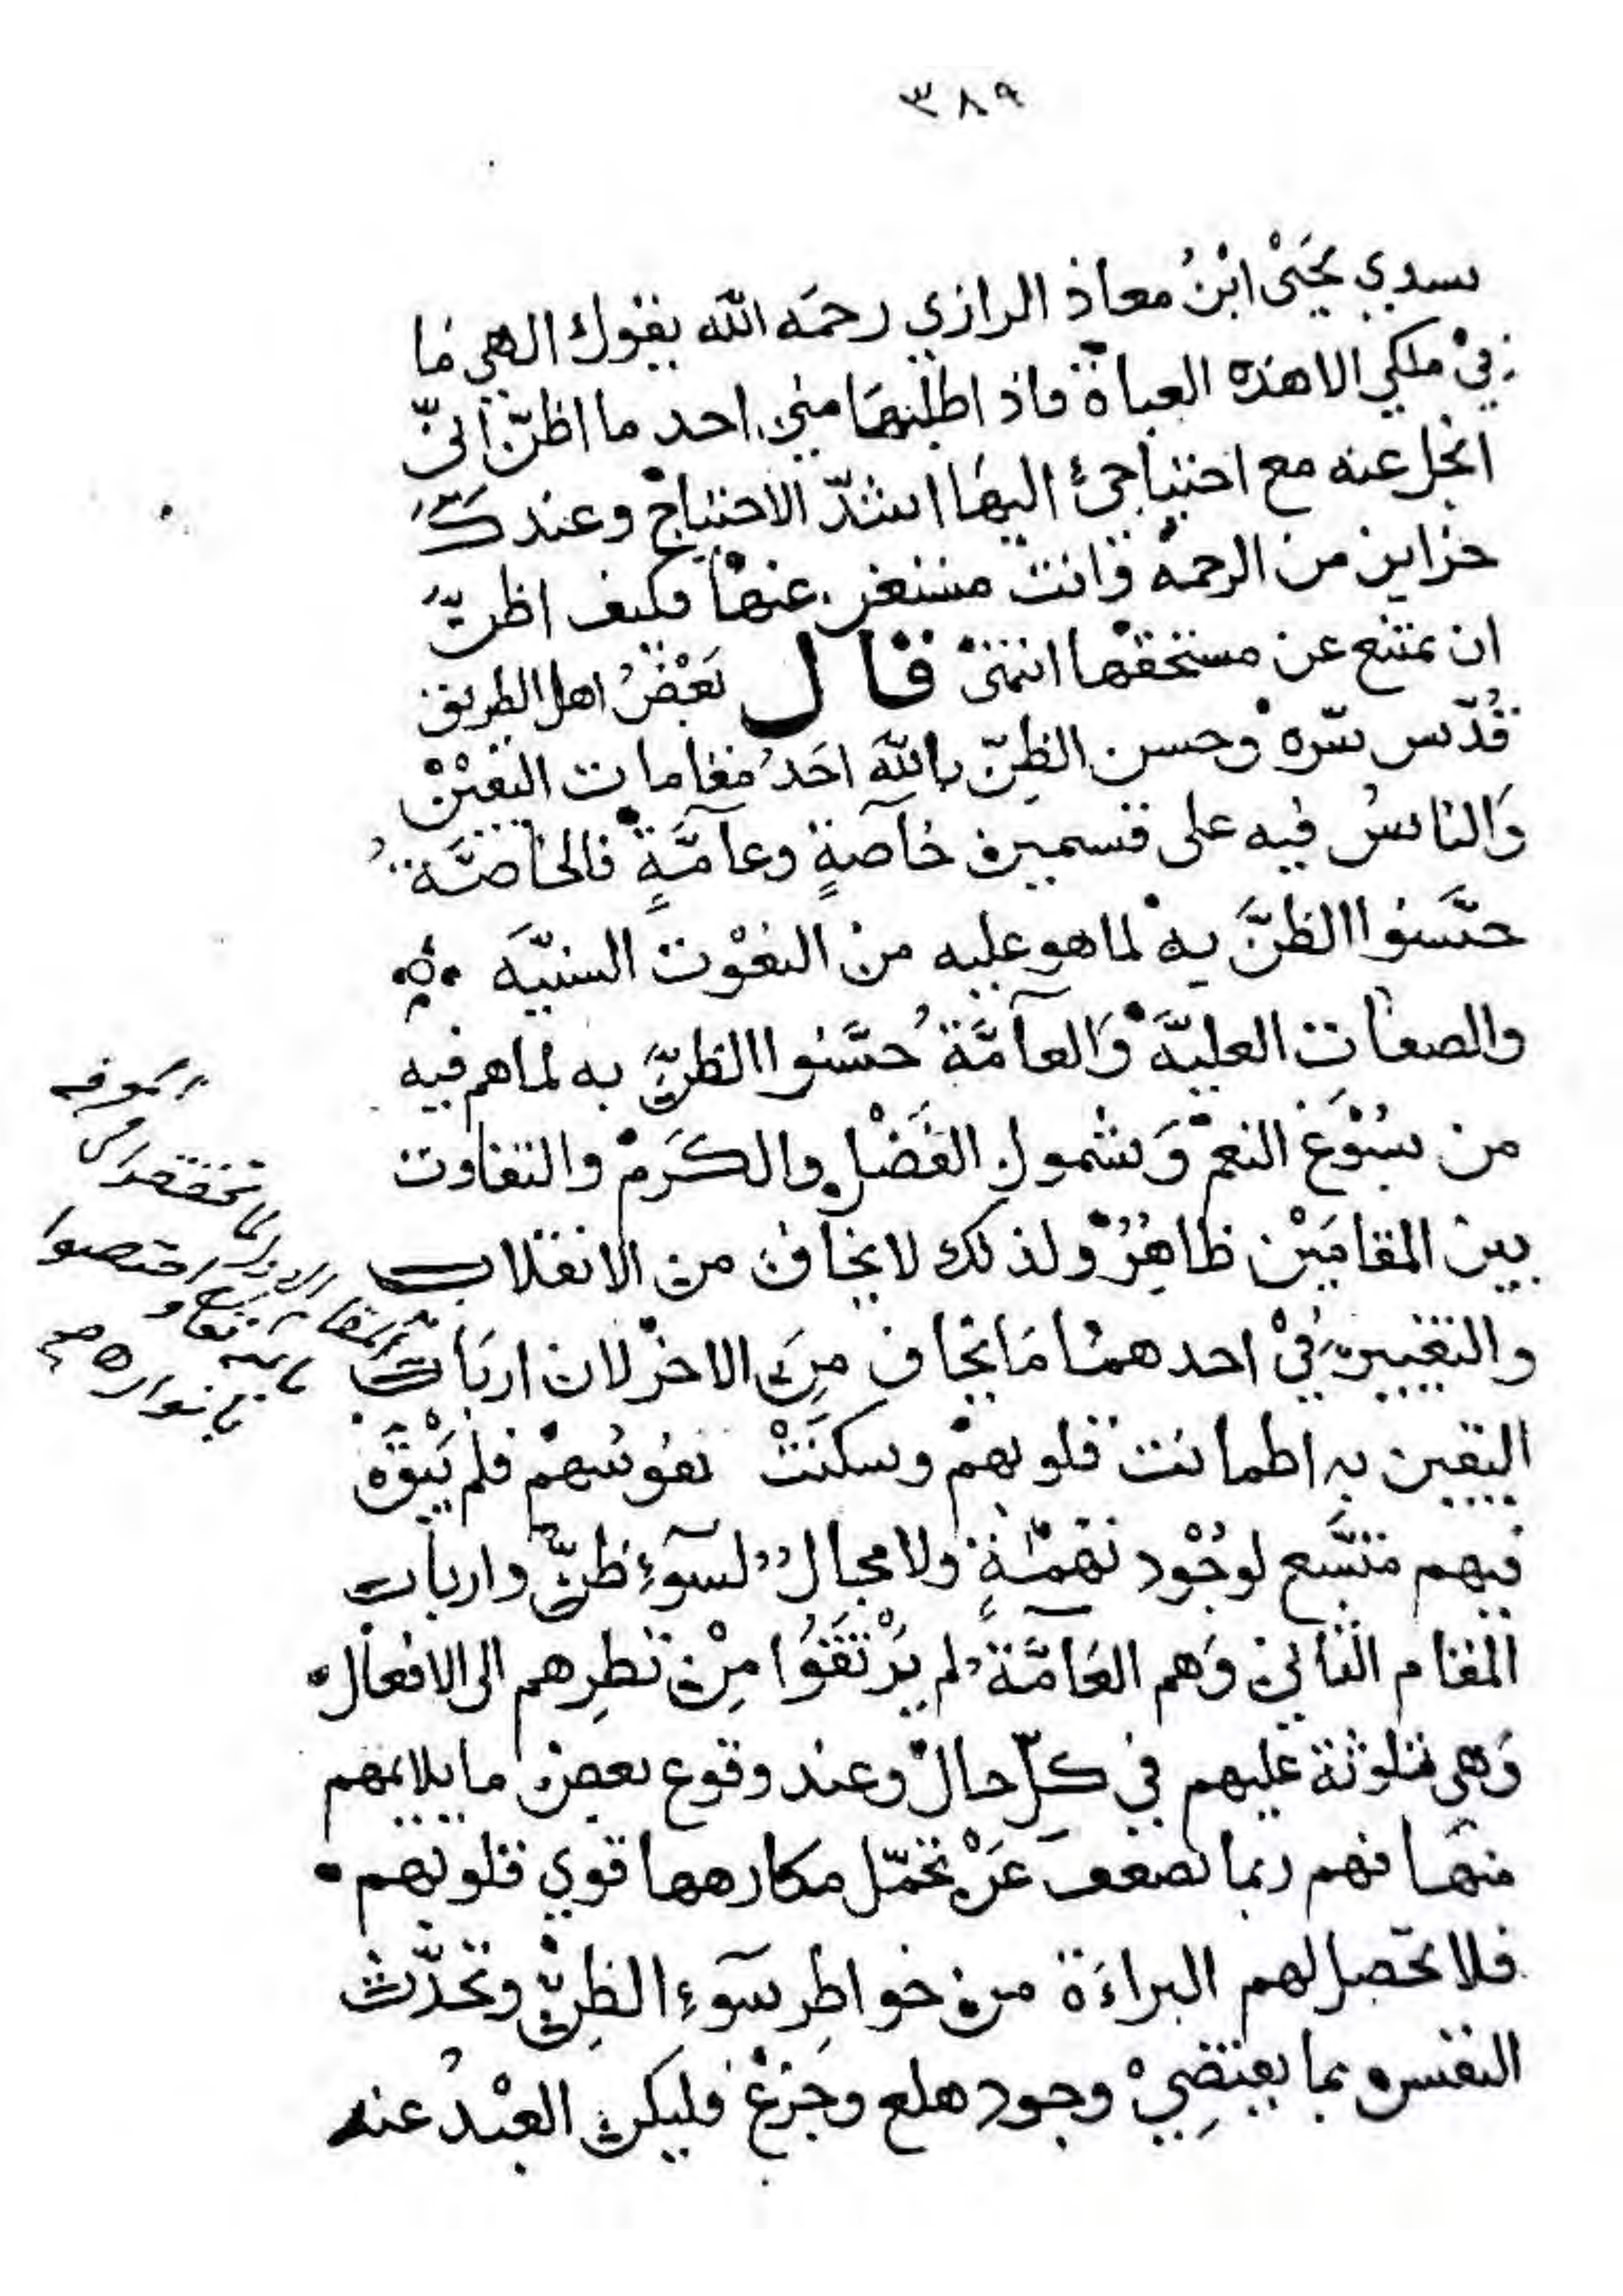 ٣٨٩
سيدي يَحْيَىْ ابْنُ معاذ الرازي رحمَه اللّه يقول الهي مَا
فِيْ ملكي الا هذه العباة فاذ اطلبهَا مني احد ما اظنّ انّي
ابخل عنه مع احتياجيْ اليهَا اشدّ الاحتياجْ وعندكَ
خزاين من الرحمهْ وْانت مستغن عنهاْ فكيف اظنّ
ان تمتنع عن مستحقهْا انتهىْ قال بَعْضُ اهل الطريق
قُدّس سّرهْ وْحسن الظِنّ باللّه احَدُ مقامات اليقيْنْ
وَالناسُ فيه على قسمين خاصةٍ وعآمَّةٍ فالخاصَّة
حسَّنوا الظنَّ به لما هو عليه من النعْوت السنيَّه
والصفات العليَّهْ وَالعآمَّة حسَّنوا الظنَّ به لما هم فيه
من سُبْوغ النعمْ وَشمولِ الفَضْل والكَرمْ والتفاوت
بين المقامَيْن ظاهِرٌ ولذلك لا يخاف من الانقلاب
والتغيير فيْ احدهما مَا يخاف مِنَ الاخرْ لان اربَاب
اليقين به اطمانت قلوبهمْ وسكنَتْ نفوسُهمْ فلم يَبْقَ
فيهم متسَّع لوجُوْد تهْمَةٍ ولا مجال لسوٓءِ ظنّ وارباب
المقام الثاني وَهم العَامَّة لم يَرْتَقَوُا مِنْ نظرِهم الى الافعال
وَهي متلوثة عليهم في كلّ حال وعند وقوع بعض ما يلايمهم
منهَا فهم ربما تضعف عَنْ تحمّل مكارهها قوي قلوبهم
فلا تحصل لهم البراءَة من خواطِر سوٓءِ الظنِّ وتحدّث
النفس بما يقتضِيْ وجود هلع وجزعْ فليكن العبْدُ عند
لما تحققه
المقام الاول
اختصوا
بانواره صح